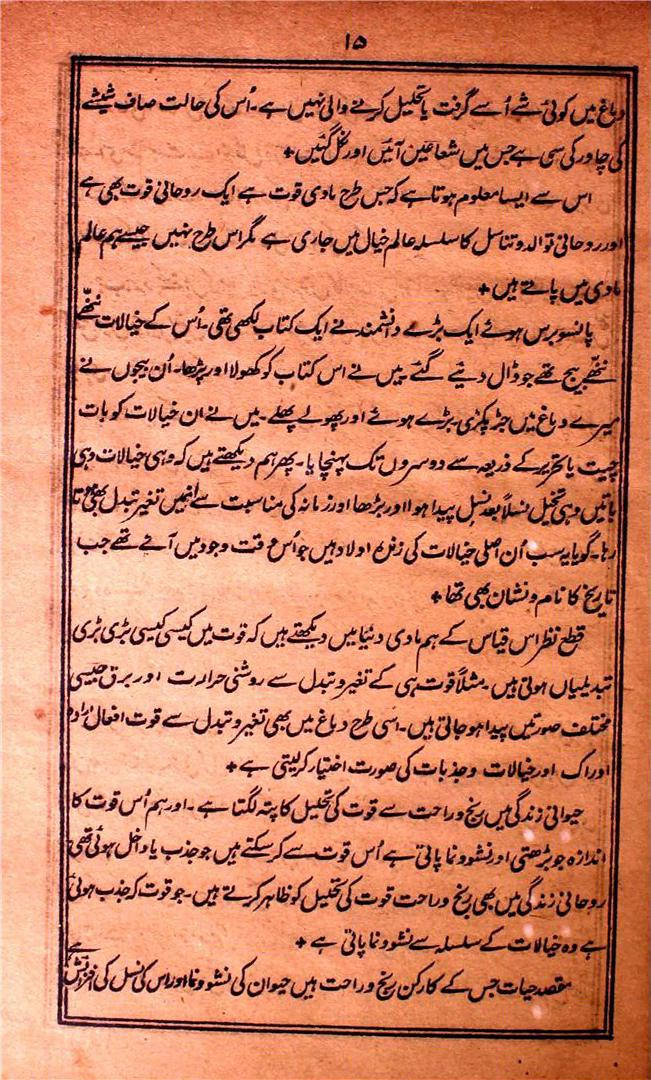 ۱۵
دماغ میں کوئی شے اُسے گرفت یا تحلیل کرنے والی نہیں ہے۔ اُس کی حالت صاف شیشے
کی چادر کی سی ہے جس میں شعاعیں آئیں اور نکل گئیں +
اس سے ایسا معلوم ہوتا ہے کہ جس طرح مادی قوت ہے ایک روحانی قوت بھی ہے
اور روحانی توالد و تناسل کا سلسلہ عالم خیال میں جاری ہے مگر اس طرح نہیں جیسے ہم عالم
مادی میں پاتے ہیں +
پانسو برس ہوئے ایک بڑے دانشمند نے ایک کتاب لکھی تھی۔ اُس کے خیالات ننھّے
ننھّے بیج تھے جو ڈال دئیے گئے۔ میں نے اس کتاب کو کھولا اور پڑھا۔ اُن بیجوں نے
میرے دماغ میں جڑ پکڑی بڑے ہوئے اور پھولے پھلے۔ میں نے ان خیالات کو بات
چیت یا تحریر کے ذریعہ سے دوسروں تک پہنچایا۔ پھر ہم دیکھتے ہیں کہ وہی خیالات وہی
باتیں وہی تخیل نسلاً بعد نسلٍ پیدا ہوا اور بڑھا اور زمانہ کی مناسبت سے اُنمیں تغیر تبدل بھی ہوتا
رہا۔ گویا یہ سب اُن اصلی خیالات کی اولاد ہیں جو اُس وقت وجود میں آئے تھے جب
تاریخ کا نام و نشان بھی تھا +
قطع نظر اس قیاس کے ہم مادی دنیا میں دیکھتے ہیں کہ قوت میں کیسی کیسی بڑی بڑی
تبدیلیاں ہوتی ہیں۔ مثلاً قوت ہی کے تغیر و تبدل سے روشنی حرارت اور برق جیسی
مختلف صورتیں پیدا ہو جاتی ہیں۔ اسی طرح دماغ میں بھی تغیر و تبدل سے قوت افعال ارادہ
ادراک اور خیالات و جذبات کی صورت اختیار کر لیتی ہے +
حیوانی زندگی میں رنج و راحت سے قوت کی تحلیل کا پتہ لگتا ہے۔ اور ہم اُس قوت کا
اندازہ جو بڑھتی اور نشوونما پاتی ہے اُس قوت سے کر سکتے ہیں جو جذب یا داخل ہوئی تھی
روحانی زندگی میں بھی رنج و راحت قوت کی تحلیل کو ظاہر کرتے ہیں۔ جو قوت کہ جذب ہوئی
ہے وہ خیالات کے سلسلہ سے نشوونما پاتی ہے +
مقصد حیات جس کے کارکن رنج و راحت ہیں حیوان کی نشوونما اور اس کی نسل کی افزائش ہے